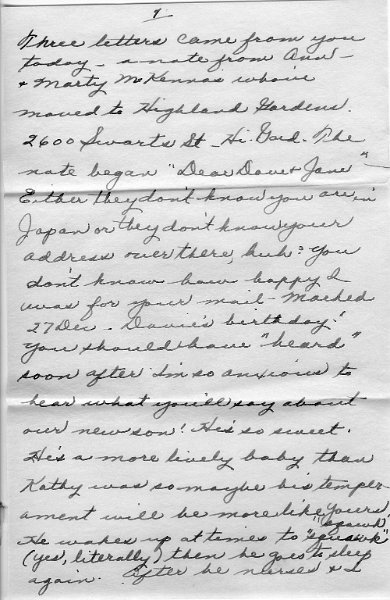 1
Three letters came from you
today - a note from Ann -
+ Marty McKennas who've
moved to Highland Gardens.
2600 Swarts St - Hi. Gard. The
note began "Dear Dave + Jane" -
Either they don't know you are in
Japan or they don't know your
address over there, huh? You
don't know how happy I
was for your mail - Marked
27 Dec - Davie's birthday!
You should have "heard"
soon after. I'm so anxious to
hear what you'll say about
our new son! He's so sweet.
He's a more lively baby than
Kathy was so maybe his temper-
ament will be more like yours,
He wakes up at times to "squawk"
(yes, literally) then he goes to sleep
again. After he nurses + I